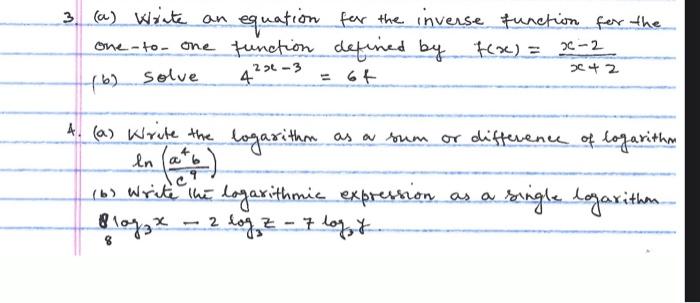 3. (a) Write an equation for the inverse function for the
one-to-one function defined by f(x) = x-2 / x+2
(b) Solve 4^2x-3 = 64
4. (a) Write the logarithm as a sum or difference of logarithm
ln (a^4b / c^9)
(b) Write the logarithmic expression as a single logarithm
8 log₃x - 2 log₃z - 7 log₃y.
8